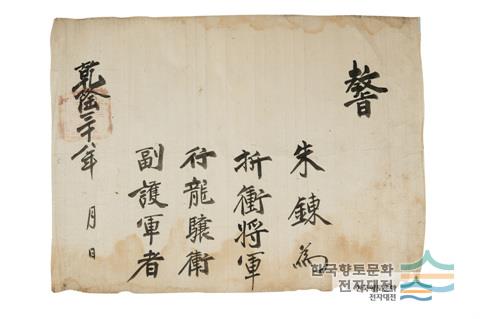 敎旨
朱鍊爲
折衝將軍
行龍驤衛
副護軍者
乾隆二十八年 月 日
한국향토문화
전자대전
한국향토문화
전자대전